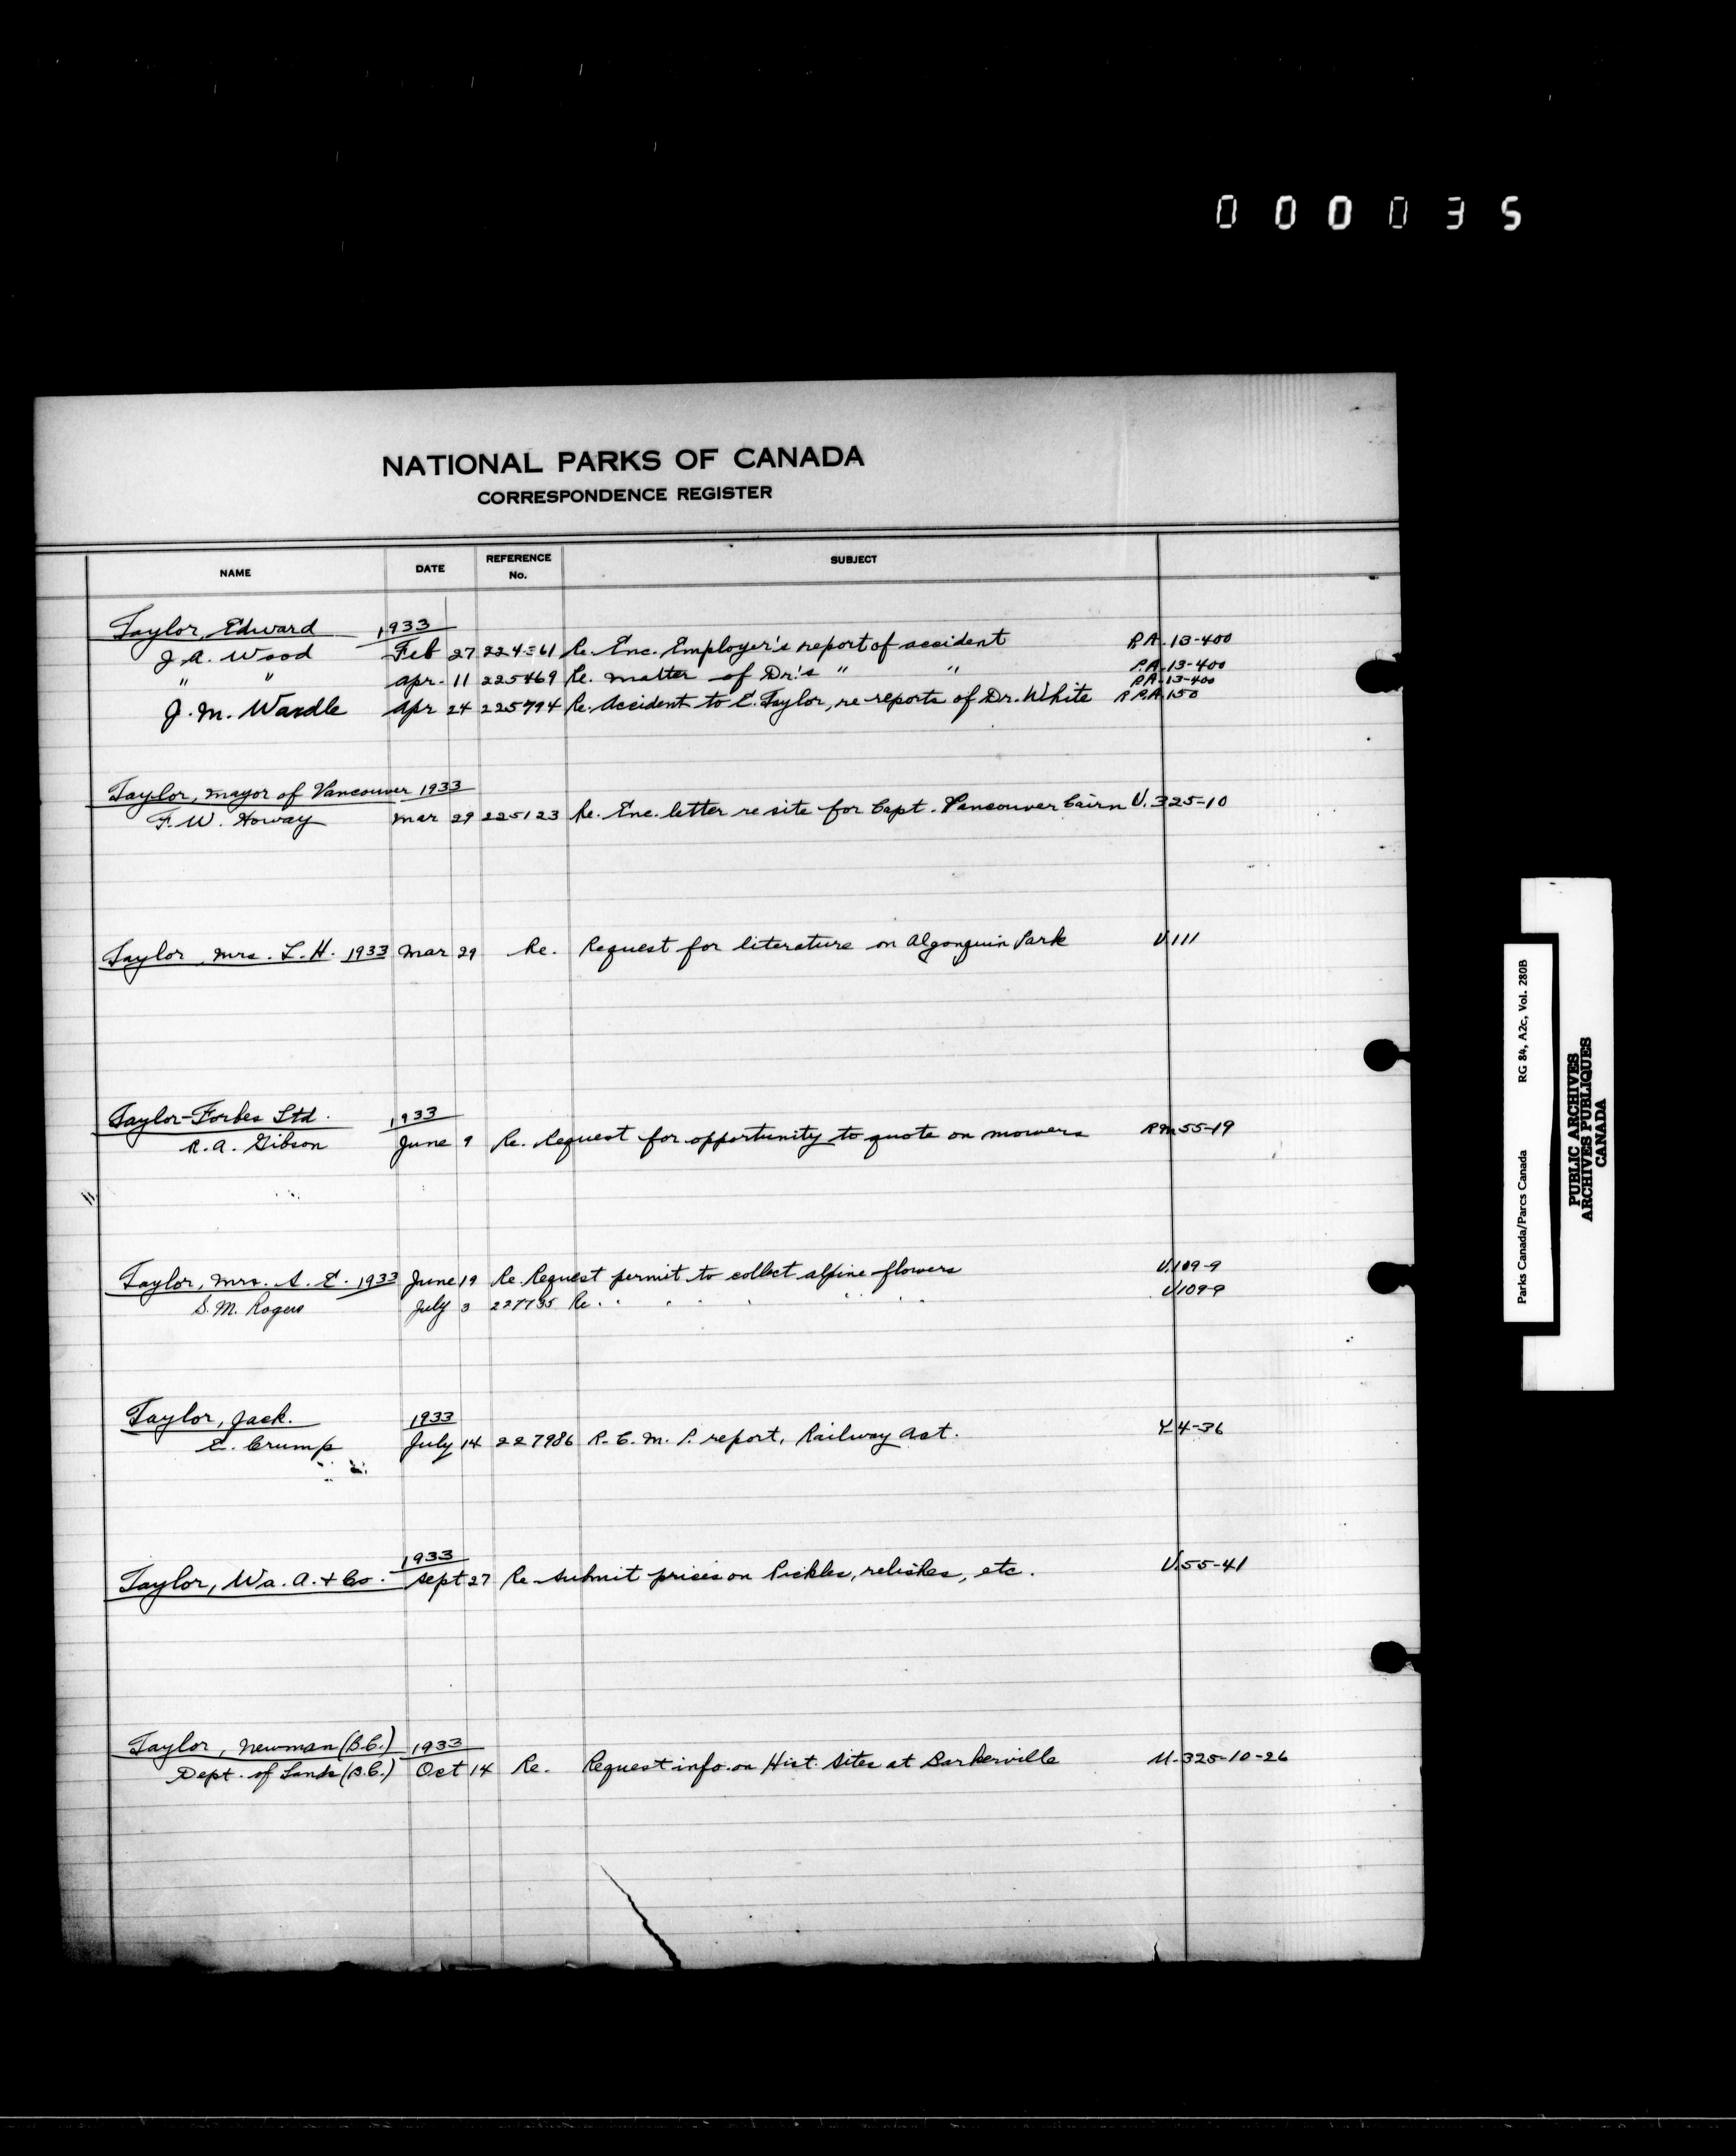 000035
NATIONAL PARKS OF CANADA
CORRESPONDENCE REGISTER
NAME DATE REFERENCE No. SUBJECT
Taylor, Edward 1933
J. A. Wood Feb 27 224361 Re. Enc. Employer's report of accident P.A. 13-400
" " Apr. 11 225469 Re. matter of Dr.'s " " P.A. 13-400
P.A. 13-400
J. M. Wardle Apr 24 225794 Re. Accident to E. Taylor, re reports of Dr. White R P.A. 150
Taylor, Mayor of Vancouver 1933
F. W. Howay Mar 29 225123 Re. Enc. letter re site for Capt. Vancouver Cairn U. 325-10
Taylor, Mrs. L. H. 1933 Mar 29 Re. Request for literature on Algonquin Park U.111
Taylor-Forbes Ltd. 1933
R. A. Gibson June 9 Re. Request for opportunity to quote on mowers RM 55-19
Taylor, Mrs. A. E. 1933 June 19 Re. Request permit to collect alpine flowers U.109-9
S. M. Rogers July 3 227735 Re. " " " " " " " U109-9
Taylor, Jack. 1933
E. Crump July 14 227986 R.C.M.P. report, Railway Act. Y4-36
Taylor, Wa. A. & Co. 1933
Sept 27 Re Submit prices on Pickles, relishes, etc. U.55-41
Taylor, Newman (B.C.) 1933
Dept. of Lands (B.C.) Oct 14 Re. Request info. on Hist. Sites at Barkerville U. 325-10-26
Parks Canada/Parcs Canada RG 84, A2c, Vol. 280B
PUBLIC ARCHIVES
ARCHIVES PUBLIQUES
CANADA